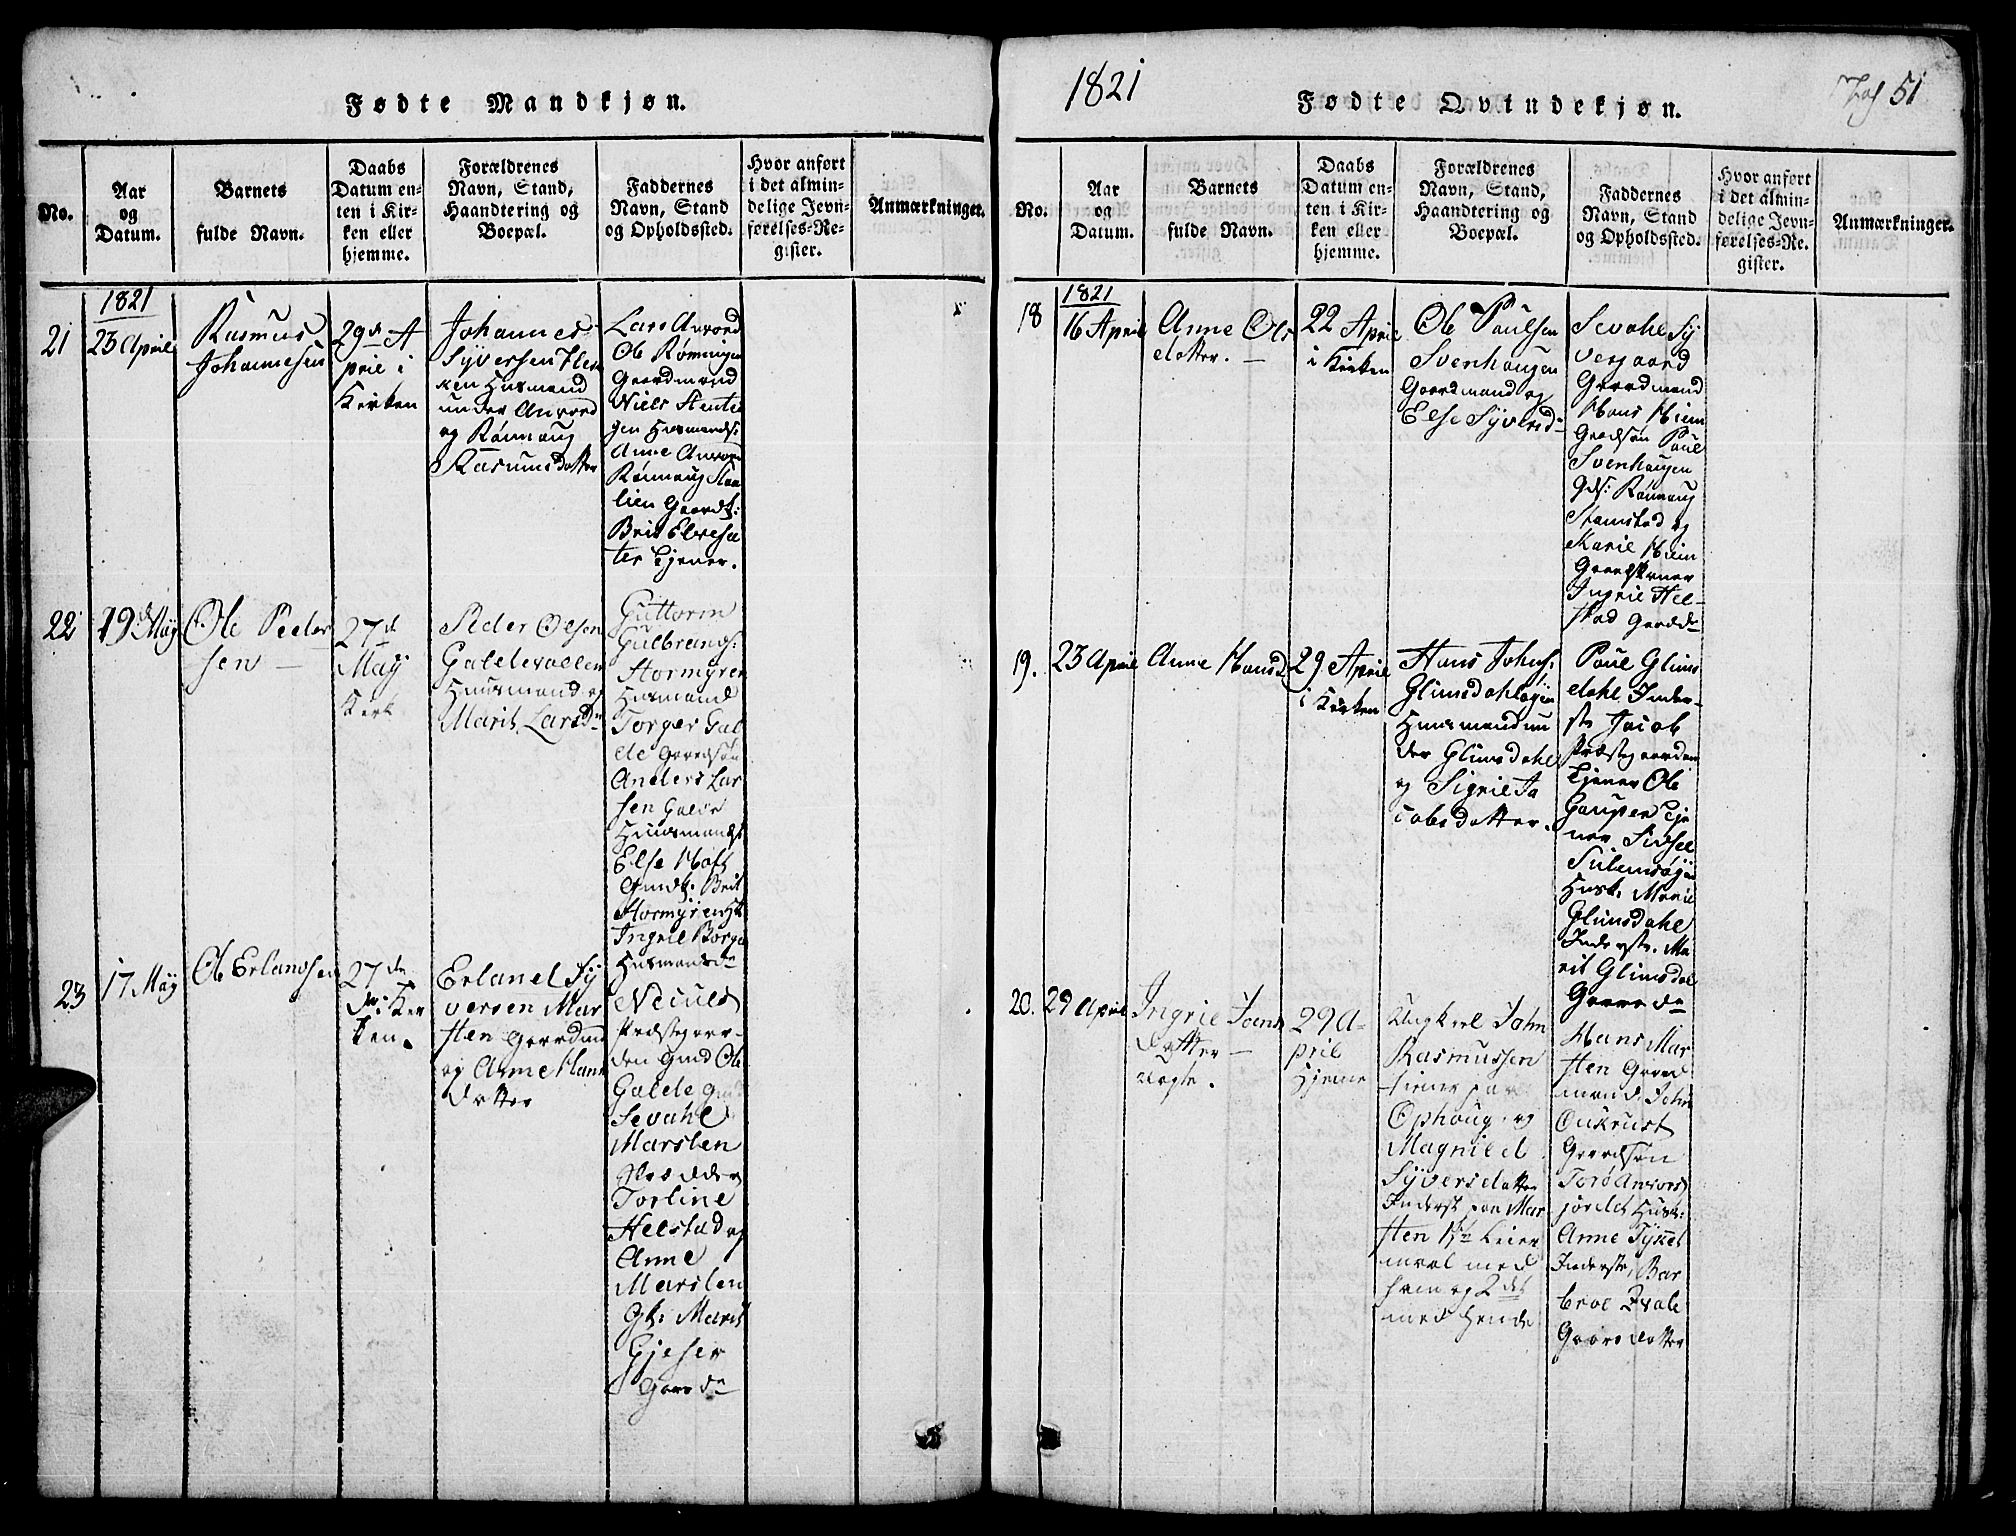 Fødte Mandkjøn.
No.
Aar
og
Datum.
Barnets
fulde Navn.
Daabs
Datum en-
ten i Kir-
ken eller
hjemme.
Forældrenes
Navn, Stand,
Haandtering og
Boepæl.
Faddernes
Navn, Stand
og Opholdssted.
Hvor anført
i det almin-
delige Jevn-
førelses-Re-
gister.
Anmærkninger.
1821
21
23 April
Rasmus
Johannesen
29de A
pril i
Kirken
Johannes
Syversen
ken Husmand
under Anvord
og Rönnaug
Rasmusdatter
Lars Anvord
Ole Rømningen
Gaardmænd
Niels Slette
gen Husmands:
Anne Anvord
Rönnaug
lien Gaardk:
Brit Elvesæ
ter Tjener.
22
29de May
Ole Peder
sen
27de
May
Kirk
Peder Olsen
Galdevolden
Huusmand og
Marit Larsdr
Guttorm
Gulbrands:
Stormyren
Husmand
Torger Gal
de Gaardsøn
Anders Lar
sen Galde
Huusmands
Else Hoft
Gmdk: Brit
Stormyren Hk
Ingrie Borge
Husmandsdr
23
17 May
Ole Erlandsen
27de
Kir
ken.
Erland Sy
versen Mar
sten Gaardm
og Anne Hans
datter
Præstegaar-
den Gmd Ole
Galde Gmd
Sevahl
Marsten
Torline
Helstad og
Anne
Marsten
Gk: Marit
Gjeser
Gaardr
1821
Fødte Qvindekjøn.
51
No.
Aar
og
Datum.
Barnets
fulde Navn.
Daabs
Datum en-
ten i Kir-
ken eller
hjemme.
Forældrenes
Navn, Stand,
Haandtering og
Boepæl.
Faddernes
Navn, Stand
og Opholdssted.
Hvor anført
i det almin-
delige Jevn-
førelses-Re-
gister.
Anmærkninger.
1821
18
16 April
Anne Ols
datter.
22 April
i Kirken
Ole Paulsen
Svenhaugen
Gaardmand og
Else Syversdr
Sevahl Sy
vergaard
Gaardmand
Hans Heim
Gaardsøn Paul
Svenhaugen
Gds: Rönnaug
Stamstad og
Marie Heim
Gaardkoner
Ingrie Hel-
stad Gaarddr
19.
23 April
Anne Hansd
29 April
i Kirken
Hans Johns:
Glimsdahlsøien
Huusmand un
der Glimsdahl
og Sigrie Ja
cobsdatter.
Paul Glims
dahl Inder-
ste Jacob
Præstegaarden
Tjener Ole
Gaupen Tje
ner Sidsel
Sulemsøien
Husk. Marie
Glimsdahl
Inderste. Ma
rit Glimsdal
Gaardr
20.
29 April
Ingrie Joens
datter
uægte.
29 A-
pril
Hjeme
Ungkarl John
Rasmussen
tiener paa
Ophoug. og
Magnild
Syversdatter
Inderst paa Mar
sten 1ste Leier
maal med
ham og 2det
med hende
Hans Mar
sten Gaard
mand. John
Oukrust
Gaardsøn
Toro Anvors
jordet Husk:
Anne
Inderste, Bar
broe Kvale
Gaardsdatter